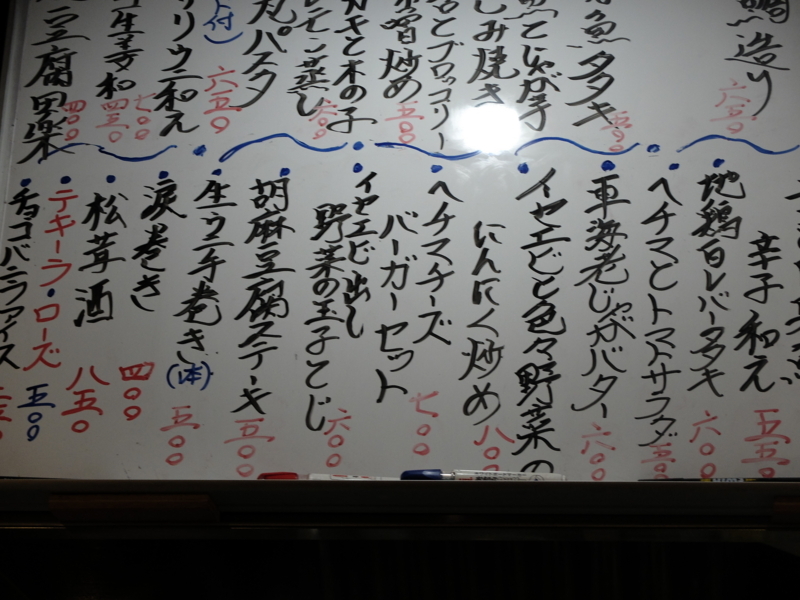 造り
魚タタキ
魚とじゃが芋
しみ焼き
とブロッコリー
味噌炒め
カキと木の子
レモン蒸し
パスタ
(付)
六五〇
ウニ和え
生姜和
七〇〇
四五〇
豆腐田楽
辛子和え
五五〇
地鶏白レバータタキ
六〇〇
ヘチマとトマトサラダ
五〇〇
車海老じゃがバター
六〇〇
イセエビと色々野菜の
にんにく炒め
八〇〇
ヘチマチーズ
バーガーセット
七〇〇
イセエビ出し
野菜の玉子とじ
六〇〇
胡麻豆腐ステーキ
五〇〇
生ウニ手巻き(1本)
五〇〇
涙巻き
四〇〇
松茸酒
八五〇
テキーラ・ローズ
五〇〇
チョコバニラアイス